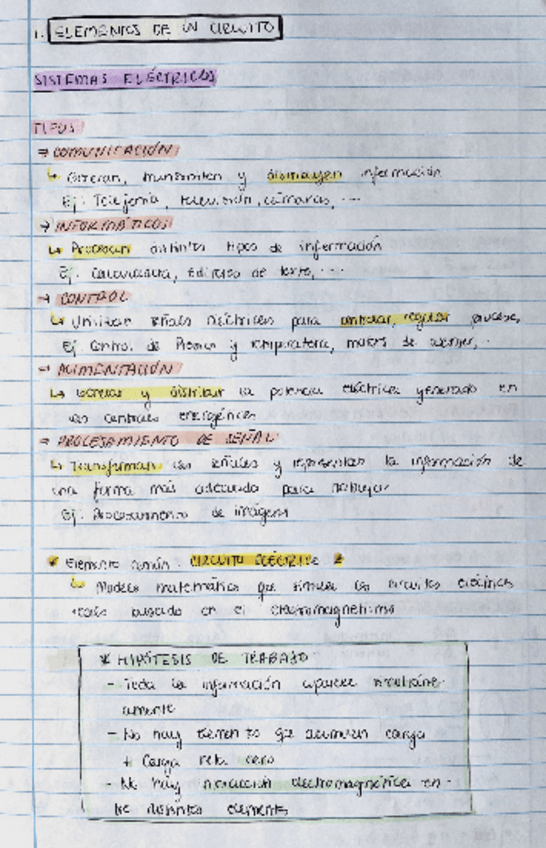 1. ELEMENTOS DE UN CIRCUITO
SISTEMAS ELÉCTRICOS
TIPOS
→ COMUNICACIÓN
↳ Generan, transmiten y distribuyen información
Ej: Telefonía, televisión, cámaras, ...
→ INFORMÁTICOS
↳ Procesan distintos tipos de información
Ej: Calculadora, Editores de texto, ...
→ CONTROL
↳ Utilizan señales eléctricas para controlar, regular procesos,
Ej Control de Presión y temperatura, motores de
→ ALIMENTACIÓN
↳ Generar y distribuir la potencia eléctrica generado en
las centrales energéticas
→ PROCESAMIENTO DE SEÑAL
↳ Transforman las señales y representan la información de
una forma más adecuada para trabajar
Ej: Procesamiento de imágenes
Elemento común: CIRCUITO ELÉCTRICO
↳ Modelo matemático que simula los circuitos eléctricos
reales basado en el electromagnetismo
* HIPÓTESIS DE TRABAJO
- Toda la información aparece instantáne-
amente
- No hay elementos que acumulen carga
Carga neta cero
- No hay interacción electromagnética en-
tre distintos elementos